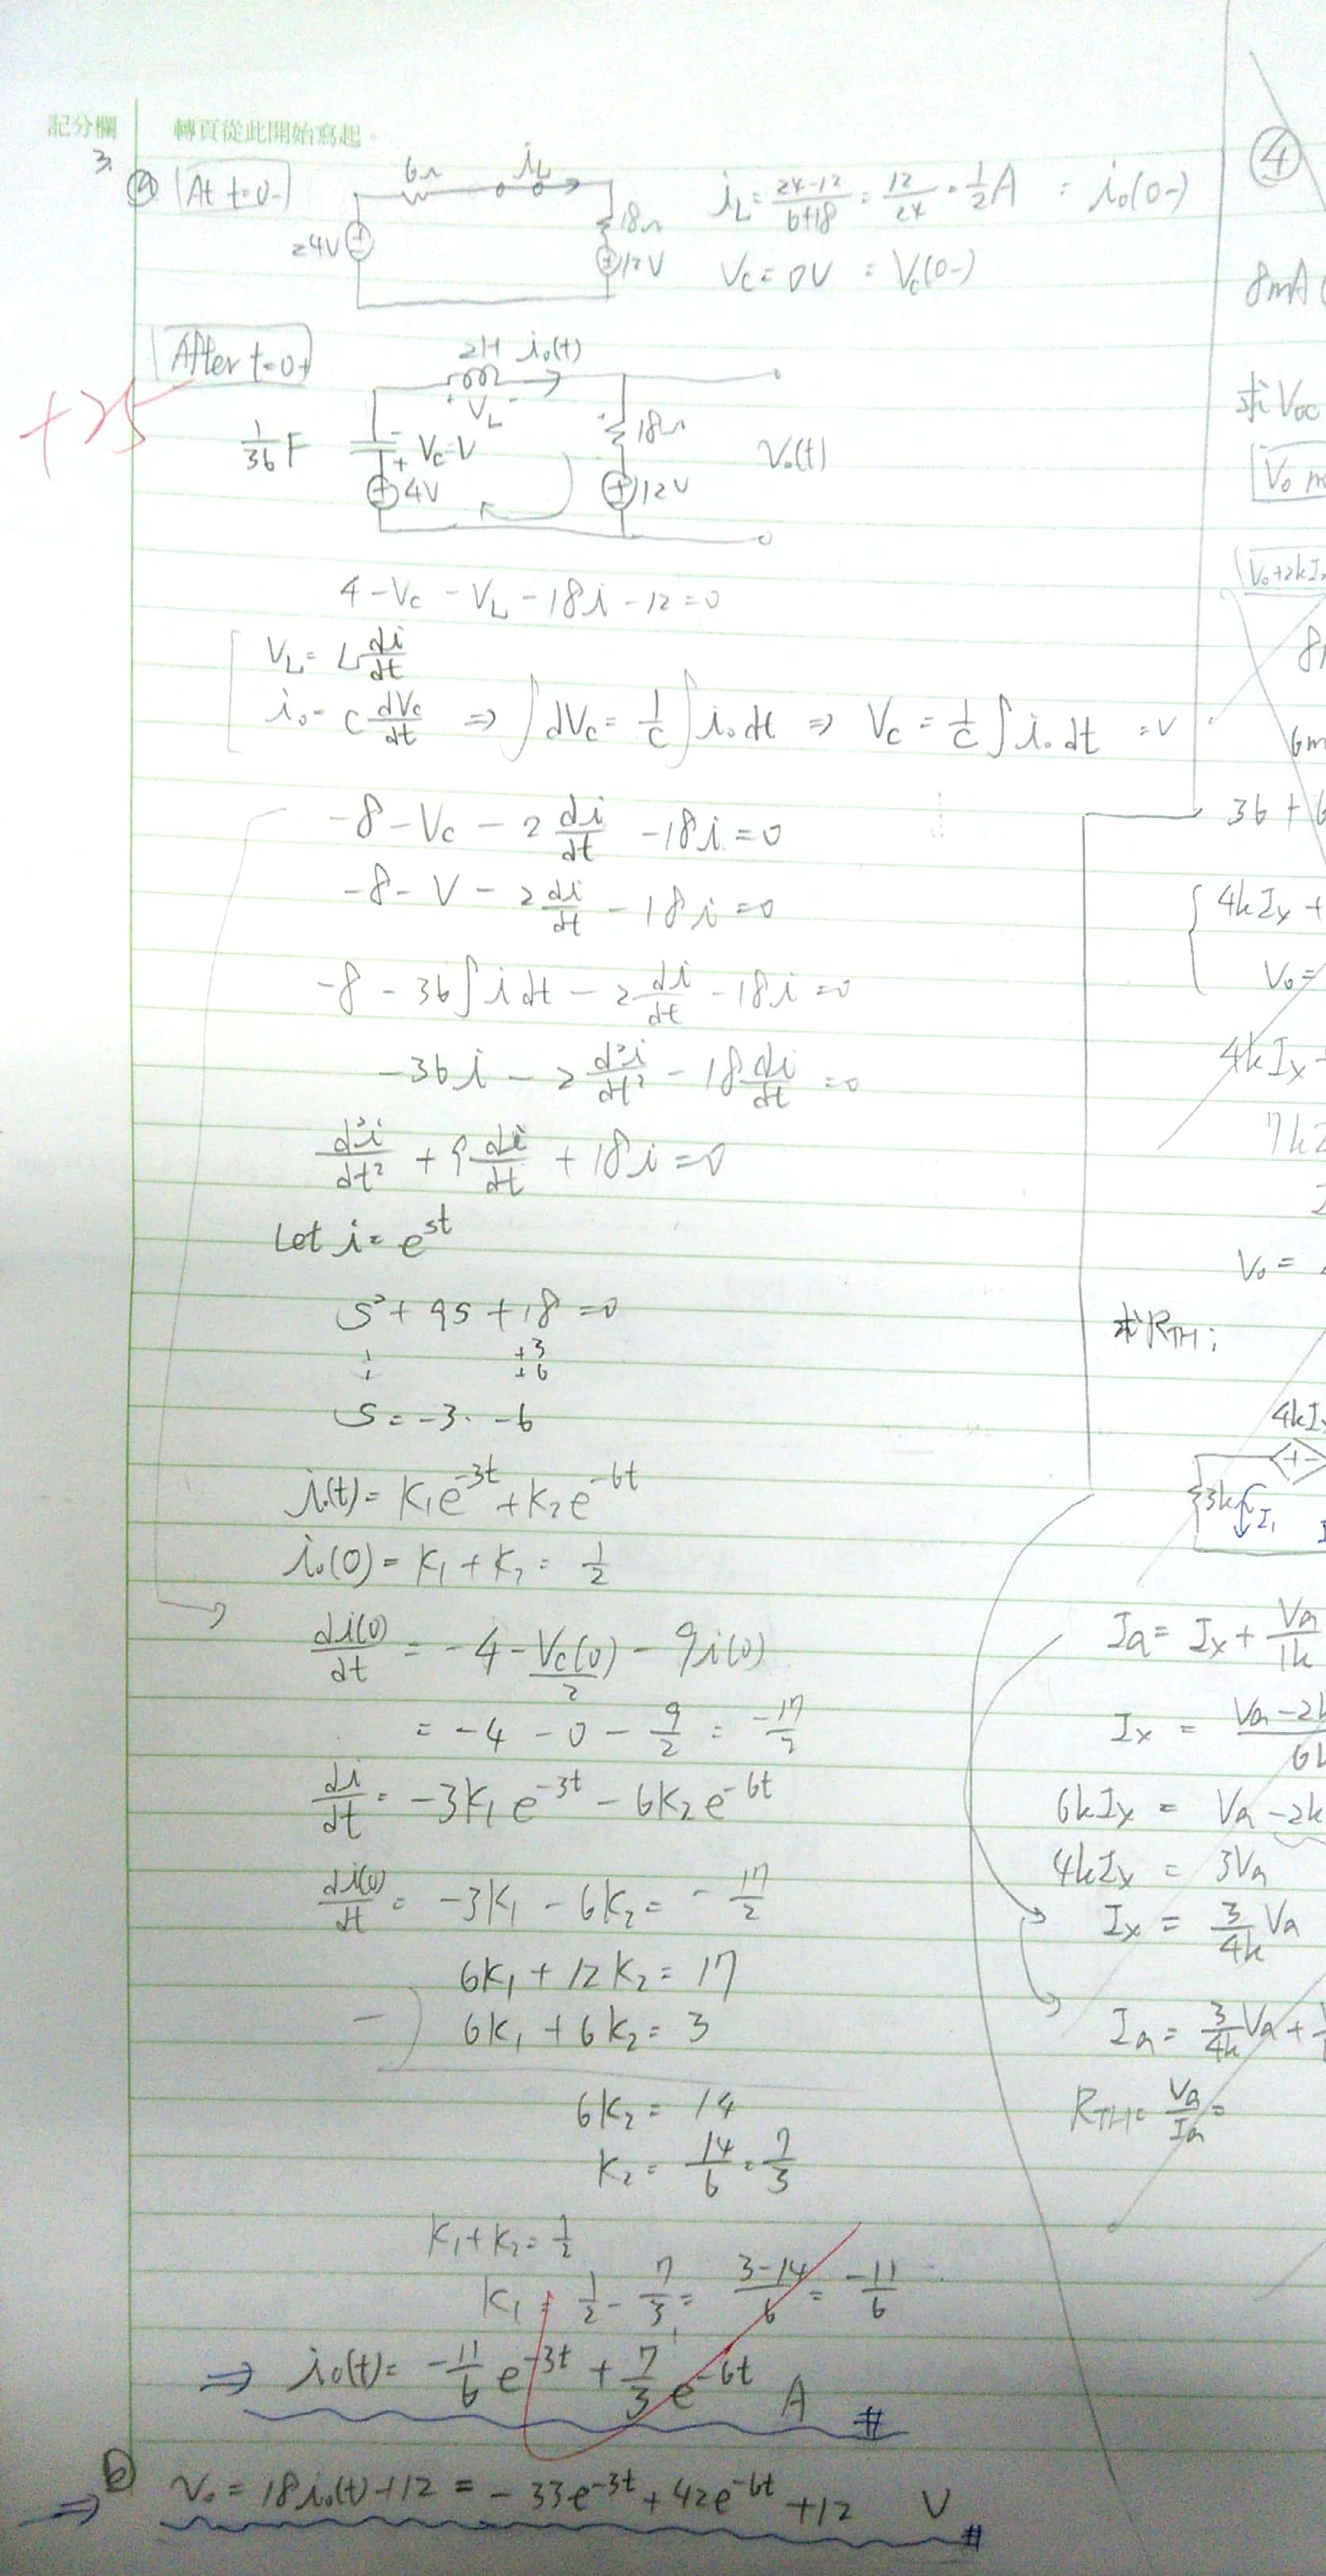 記分欄
轉頁從此開始寫起。
3.
ⓐ At t=0-
6Ω iL
24V
18Ω
12V
iL = (24-12)/(6+18) = 12/24 = 1/2 A = io(0-)
Vc = 0V = Vc(0-)
After t=0+
+25
2H io(t)
+ VL -
1/36 F
- + Vc=V
4V
18Ω
12V
Vo(t)
4 - Vc - VL - 18i - 12 = 0
VL = L di/dt
io = C dVc/dt ⇒ ∫dVc = 1/C ∫io dt ⇒ Vc = 1/C ∫io dt = V
-8 - Vc - 2 di/dt - 18i = 0
-8 - V - 2 di/dt - 18i = 0
-8 - 36∫i dt - 2 di/dt - 18i = 0
-36i - 2 d²i/dt² - 18 di/dt = 0
d²i/dt² + 9 di/dt + 18i = 0
Let i = e^st
s² + 9s + 18 = 0
+3
+6
s = -3, -6
i(t) = K1e^-3t + K2e^-6t
io(0) = K1 + K2 = 1/2
di(0)/dt = -4 - Vc(0)/2 - 9i(0)
= -4 - 0 - 9/2 = -17/2
di/dt = -3K1e^-3t - 6K2e^-6t
di(0)/dt = -3K1 - 6K2 = -17/2
6K1 + 12K2 = 17
-) 6K1 + 6K2 = 3
6K2 = 14
K2 = 14/6 = 7/3
K1 + K2 = 1/2
K1 = 1/2 - 7/3 = (3-14)/6 = -11/6
⇒ io(t) = -11/6 e^-3t + 7/3 e^-6t A #
ⓑ
⇒ Vo = 18io(t) + 12 = -33e^-3t + 42e^-6t + 12 V #
④
8mA
求Voc
Vo
Vo+2kIx
8
6m
36 + 6
4kIx +
Vo =
4kIx
7k
Vo =
求RTH:
4kI
+ -
3k I1
Ia = Ix + Va/1k
Ix = (Va-2k)/6k
6kIx = Va - 2k
4kIx = 3Va
Ix = 3/4k Va
Ia = 3/4k Va +
RTH = Va/Ia =